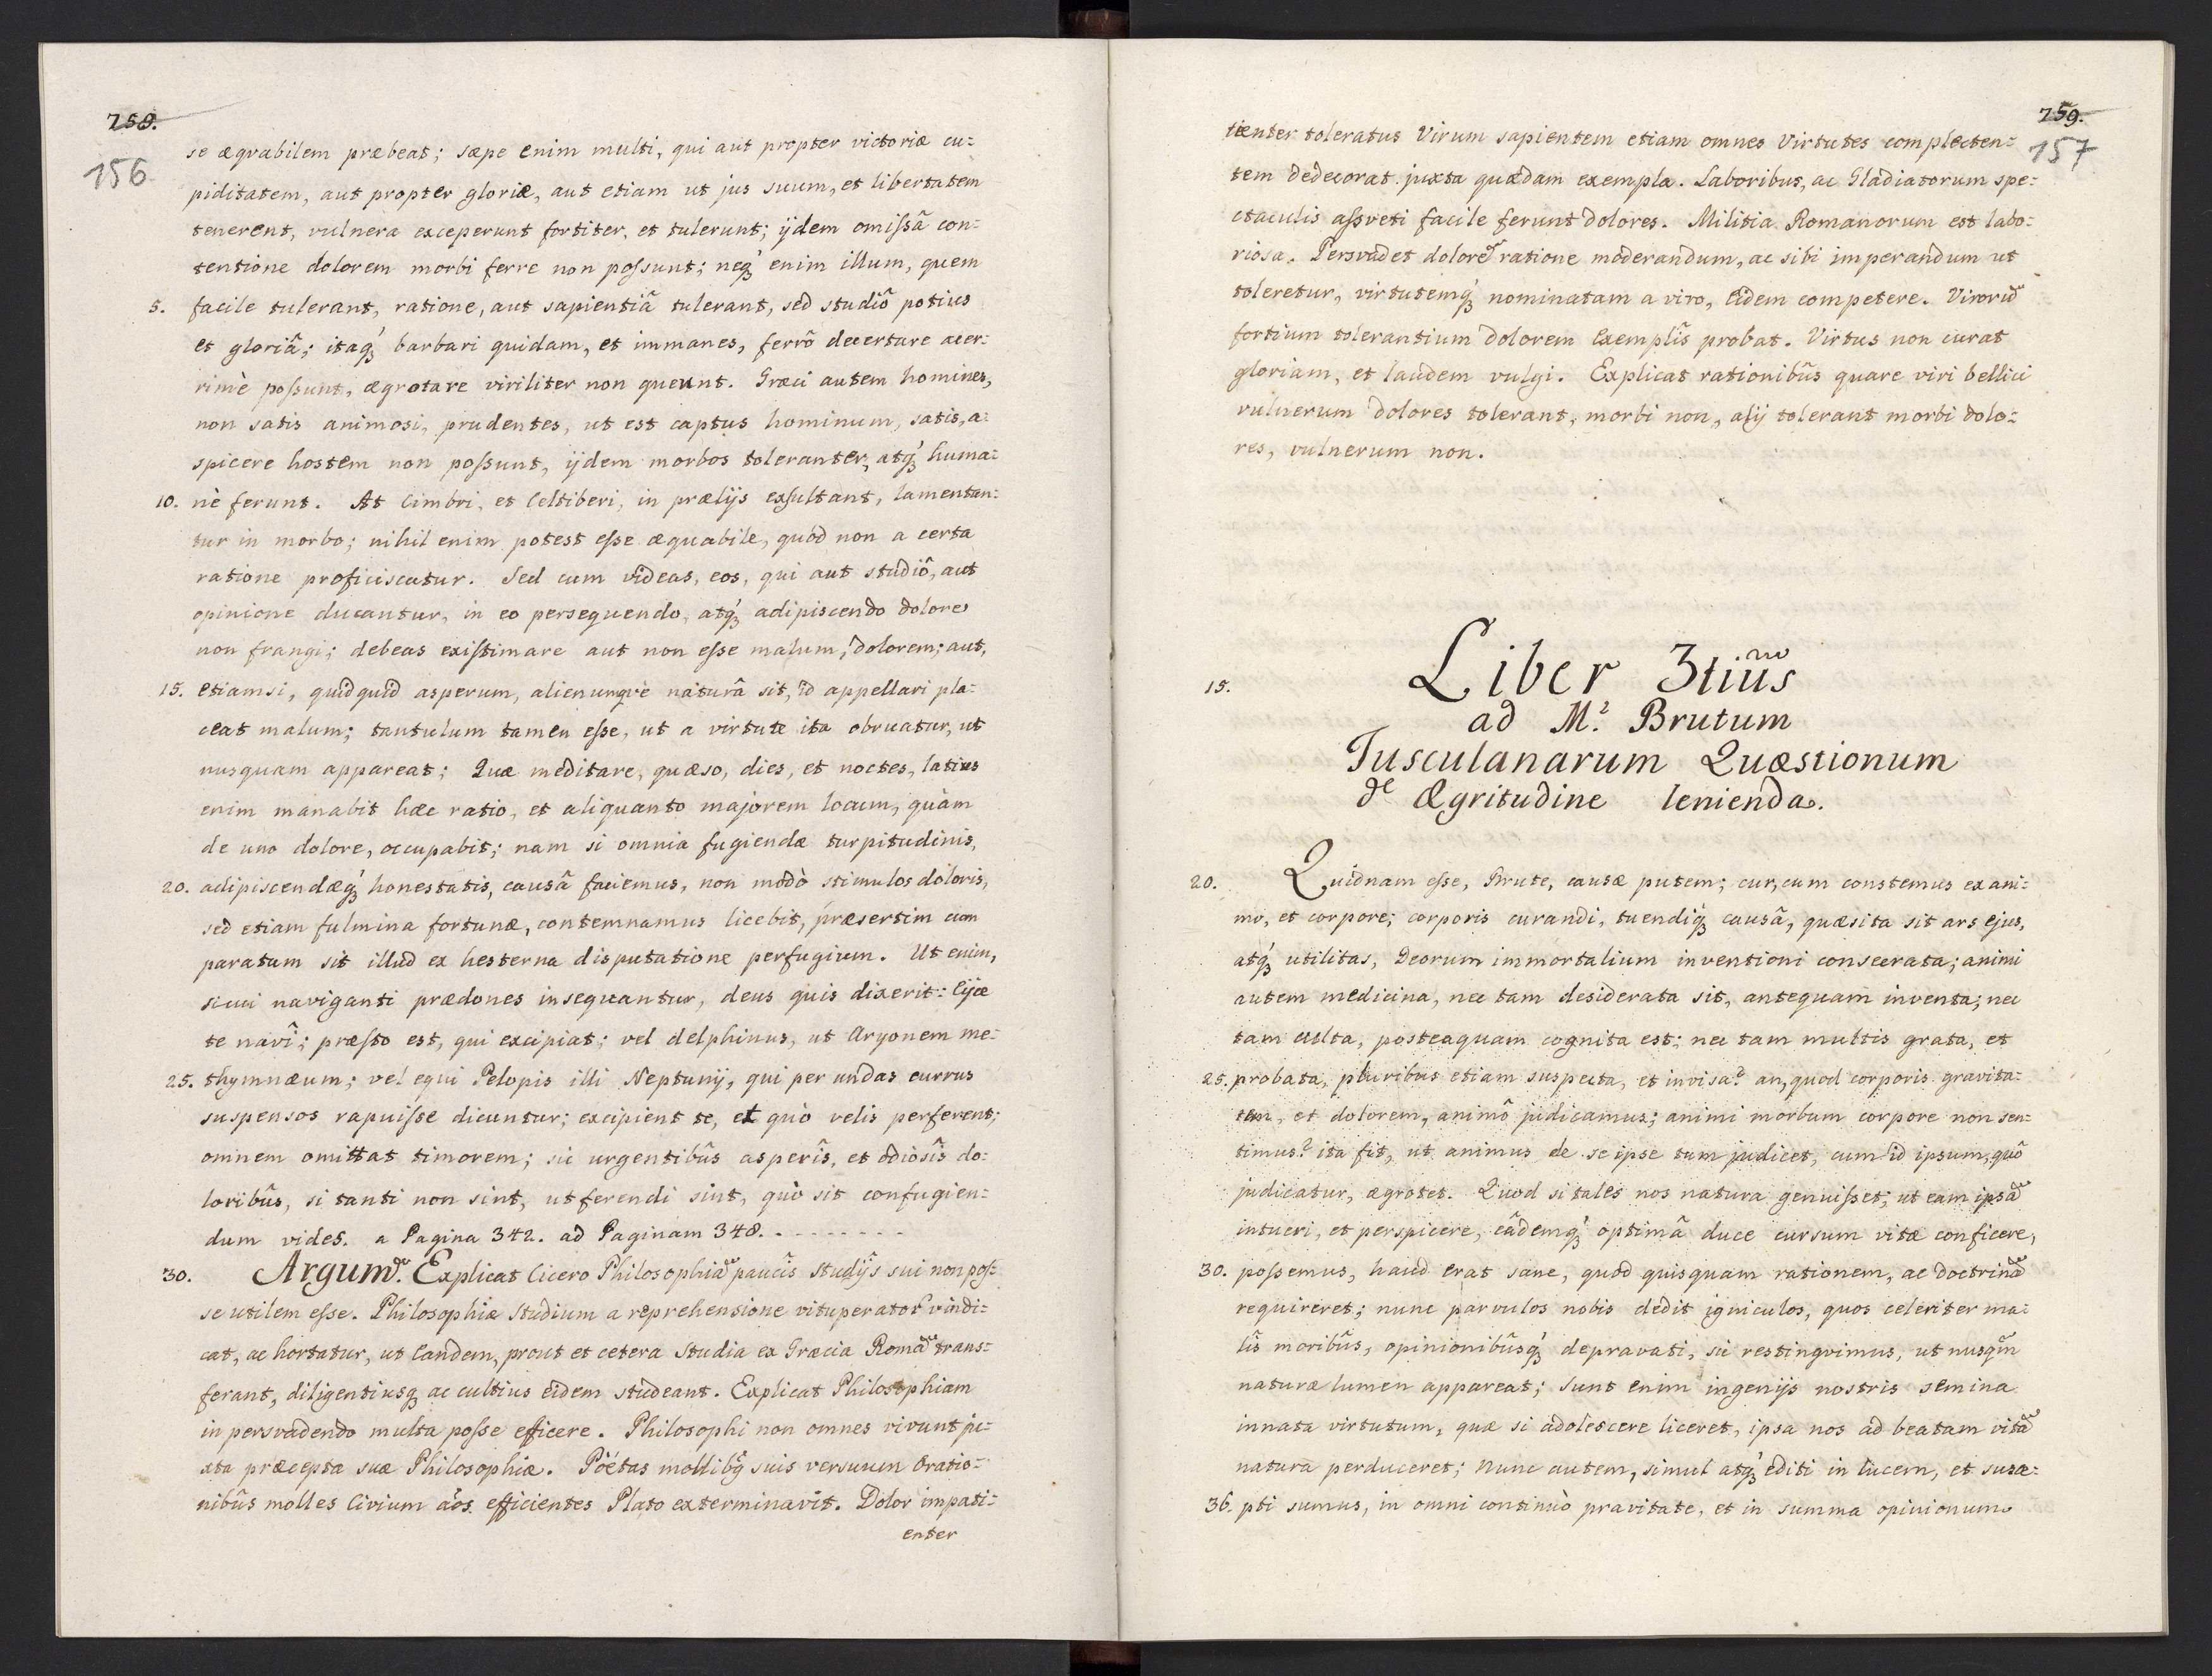 758.
156
se æqvabilem præbeat; sæpe enim multi, qui aut propter victoriæ cu=
piditatem, aut propter gloriæ, aut etiam ut jus suum, et libertatem
tenerent, vulnera exceperunt fortiter, et tulerunt; ijdem omißâ con=
tentione dolorem morbi ferre non poßunt; neq́ꝫ enim illum, quem
5. facile tulerant, ratione, aut sapientiâ tulerant, sed studiô potius
et gloriâ; itaq́ꝫ barbari quidam, et immanes, ferrô decertare acer=
rimè poßunt, ægrotare viriliter non queunt. Græci autem homines,
non satis animosi, prudentes, ut est captus hominum, satis, a=
spicere hostem non poßunt, ijdem morbos toleranter, atq́ꝫ huma=
10. nè ferunt. At Cimbri, et Celtiberi, in prælijs exsultant, lamentan=
tur in morbo; nihil enim potest eße æquabile, quod non a certa
ratione proficiscatur. Sed cum videas, eos, qui aut studiô, aut
opinione ducantur, in eo persequendo, atq́ꝫ adipiscendo dolore
non frangi; debeas existimare aut non eße malum, dolorem; aut,
15. etiamsi, quidquid asperum, alienumqvè naturâ sit, id appellari pla=
ceat malum; tantulum tamen eße, ut a virtute ita obruatur, ut
nusquam appareat; Quæ meditare, quæso, dies, et noctes, latius
enim manabit hæc ratio, et aliquanto majorem locum, quàm
de uno dolore, occupabit; nam si omnia fugiendæ turpitudinis,
20. adipiscendæq́ꝫ honestatis, causâ faciemus, non modò stimulos doloris,
sed etiam fulmina fortunæ, contemnamus licebit, præsertim cum
paratum sit illud ex hesterna disputatione perfugium. Ut enim,
sicui naviganti prædones insequantur, deus quis dixerit: Ejice
te navî; præsto est, qui excipiat; vel delphinus, ut Aryonem me=
25. thymnæum; vel equi Pelopis illi Neptunij, qui per undas currus
suspensos rapuiße dicuntur; excipient te, et quò velis perferent;
omnem omittat timorem; sic urgentibûs asperîs, et odiosîs do=
loribûs, si tanti non sint, ut ferendi sint, quò sit confugien=
dum vides. a Pagina 342. ad Paginam 348. . - - - - - - -
30. Argum. Explicat Cicero Philosophiã paucîs studijs sui non poß=
se utilem eße. Philosophiæ Studium a reprehensione vituperator̃ vindi=
cat, ac hortatur, ut Eandem, prout et cetera Studia ex Græcia Romã trans=
ferant, diligentiusqꝫ ac cultius eidem studeant. Explicat Philosophiam
in persvadendo multa poße efficere. Philosophi non omnes vivunt ju=
xta præcepta suæ Philosophiæ. Poétas mollibq̃ suis versuum Oratio=
nibûs molles Civium años efficientes Plato exterminavit. Dolor impati=
enter
759.
157
tienter toleratus Virum sapientem etiam omnes Virtutes complecten=
tem dedecorat juxta quædam exempla. Laboribus, ac Gladiatorum spe=
ctaculis aßveti facile ferunt dolores. Militia Romanorum est labo=
riosa. Persvadet dolorẽ ratione moderandum, ac sibi imperandum ut
toleretur, virtutemq́ꝫ nominatam a viro, Eidem competere. Virorũ
fortium tolerantium dolorem Exemplîs probat. Virtus non curat
gloriam, et laudem vulgi. Explicat rationibûs quare viri bellici
vulnerum dolores tolerant, morbi non, alij tolerant morbi dolo=
res, vulnerum non.
15. Liber 3tiũs
ad M. Brutum
Tusculanarum Quæstionum
de Ægritudine lenienda.
20. Quidnam eße, Brute, causæ putem; cur, cum constemus ex ani=
mo, et corpore; corporis curandi, tuendiq́ꝫ causâ, quæsita sit ars ejus,
atq́ꝫ utilitas, Deorum immortalium inventioni consecrata; animi
autem medicina, nec tam desiderata sit, antequam inventa; nec
tam culta, posteaquam cognita est; nec tam multis grata, et
25. probata, pluribus etiam suspecta, et invisa? an, quod corporis gravita=
tem, et dolorem, animô judicamus; animi morbum corpore non sen=
timus? ita fit, ut animus de se ipse tum judicet, cum id ipsum, quô
judicatur, ægrotet. Quod si tales nos natura genuißet; ut eam ipsã
intueri, et perspicere, eâdemq́ꝫ optimâ duce cursum vitæ conficere,
30. poßemus, haud erat sane, quod quisquam rationem, ac doctrinã
requireret; nunc parvulos nobis dedit igniculos, quos celeriter ma=
lîs moribûs, opinionibûsq́ꝫ depravati, sic restingvimus, ut nusqũm
naturæ lumen appareat; Sunt enim ingenijs nostris semina
innata virtutum, quæ si adolescere liceret, ipsa nos ad beatam vitã
natura perduceret; Nunc autem, simul atq́ꝫ editi in lucem, et susce=
36. pti sumus, in omni continuò pravitate, et in summa opinionum